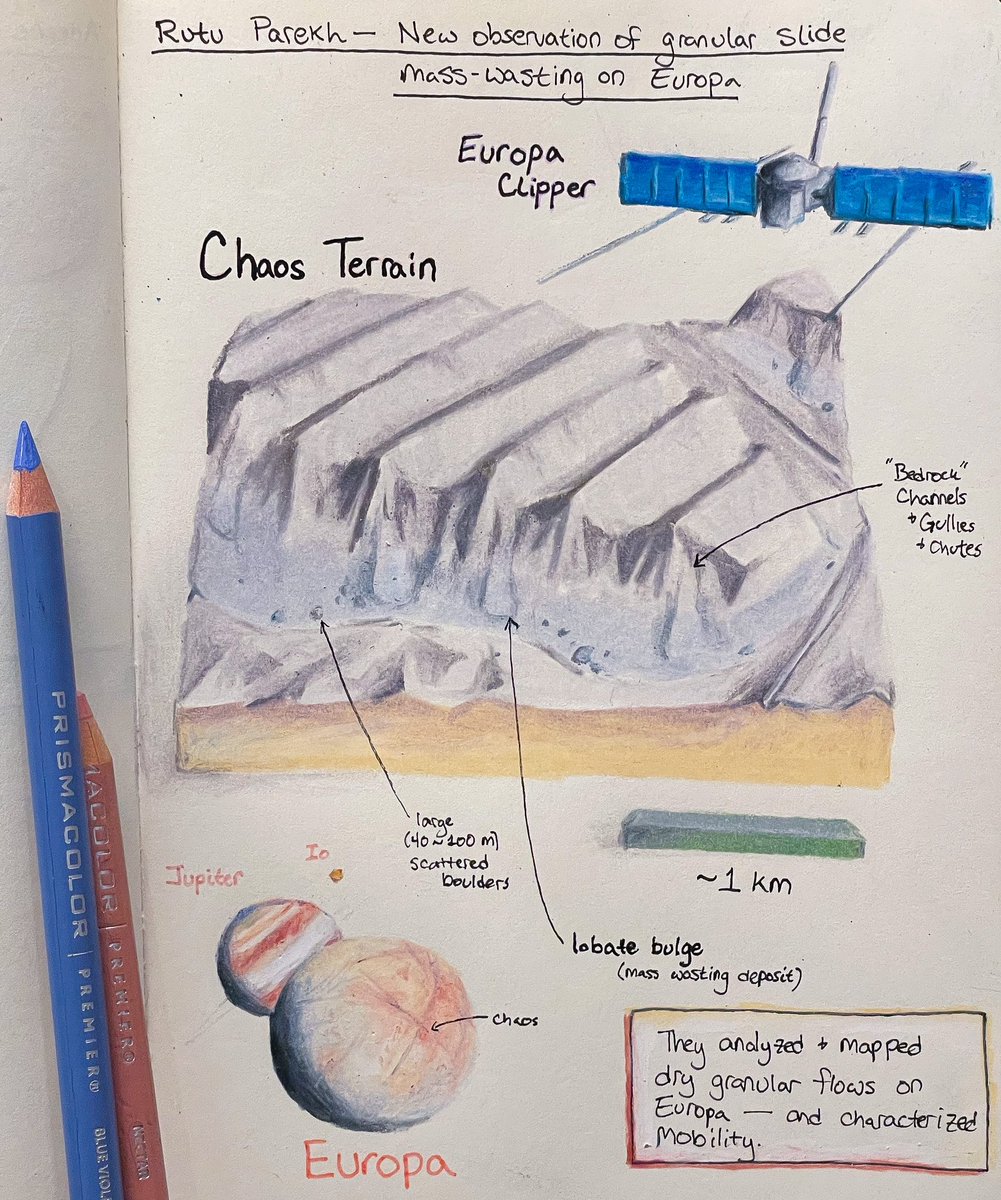 Rutu Parekh — New observation of granular slide
mass-wasting on Europa
Europa
Clipper
Chaos Terrain
"Bedrock"
Channels
+ Gullies
+ Chutes
large
(40~100 m)
scattered
boulders
~1 km
Io
Jupiter
lobate bulge
(mass wasting deposit)
chaos
They analyzed + mapped
dry granular flows on
Europa — and characterized
Mobility.
Europa
PRISMACOLOR | PREMIER® BLUE VIOL
MACOLOR | PREMIER® NECTAR